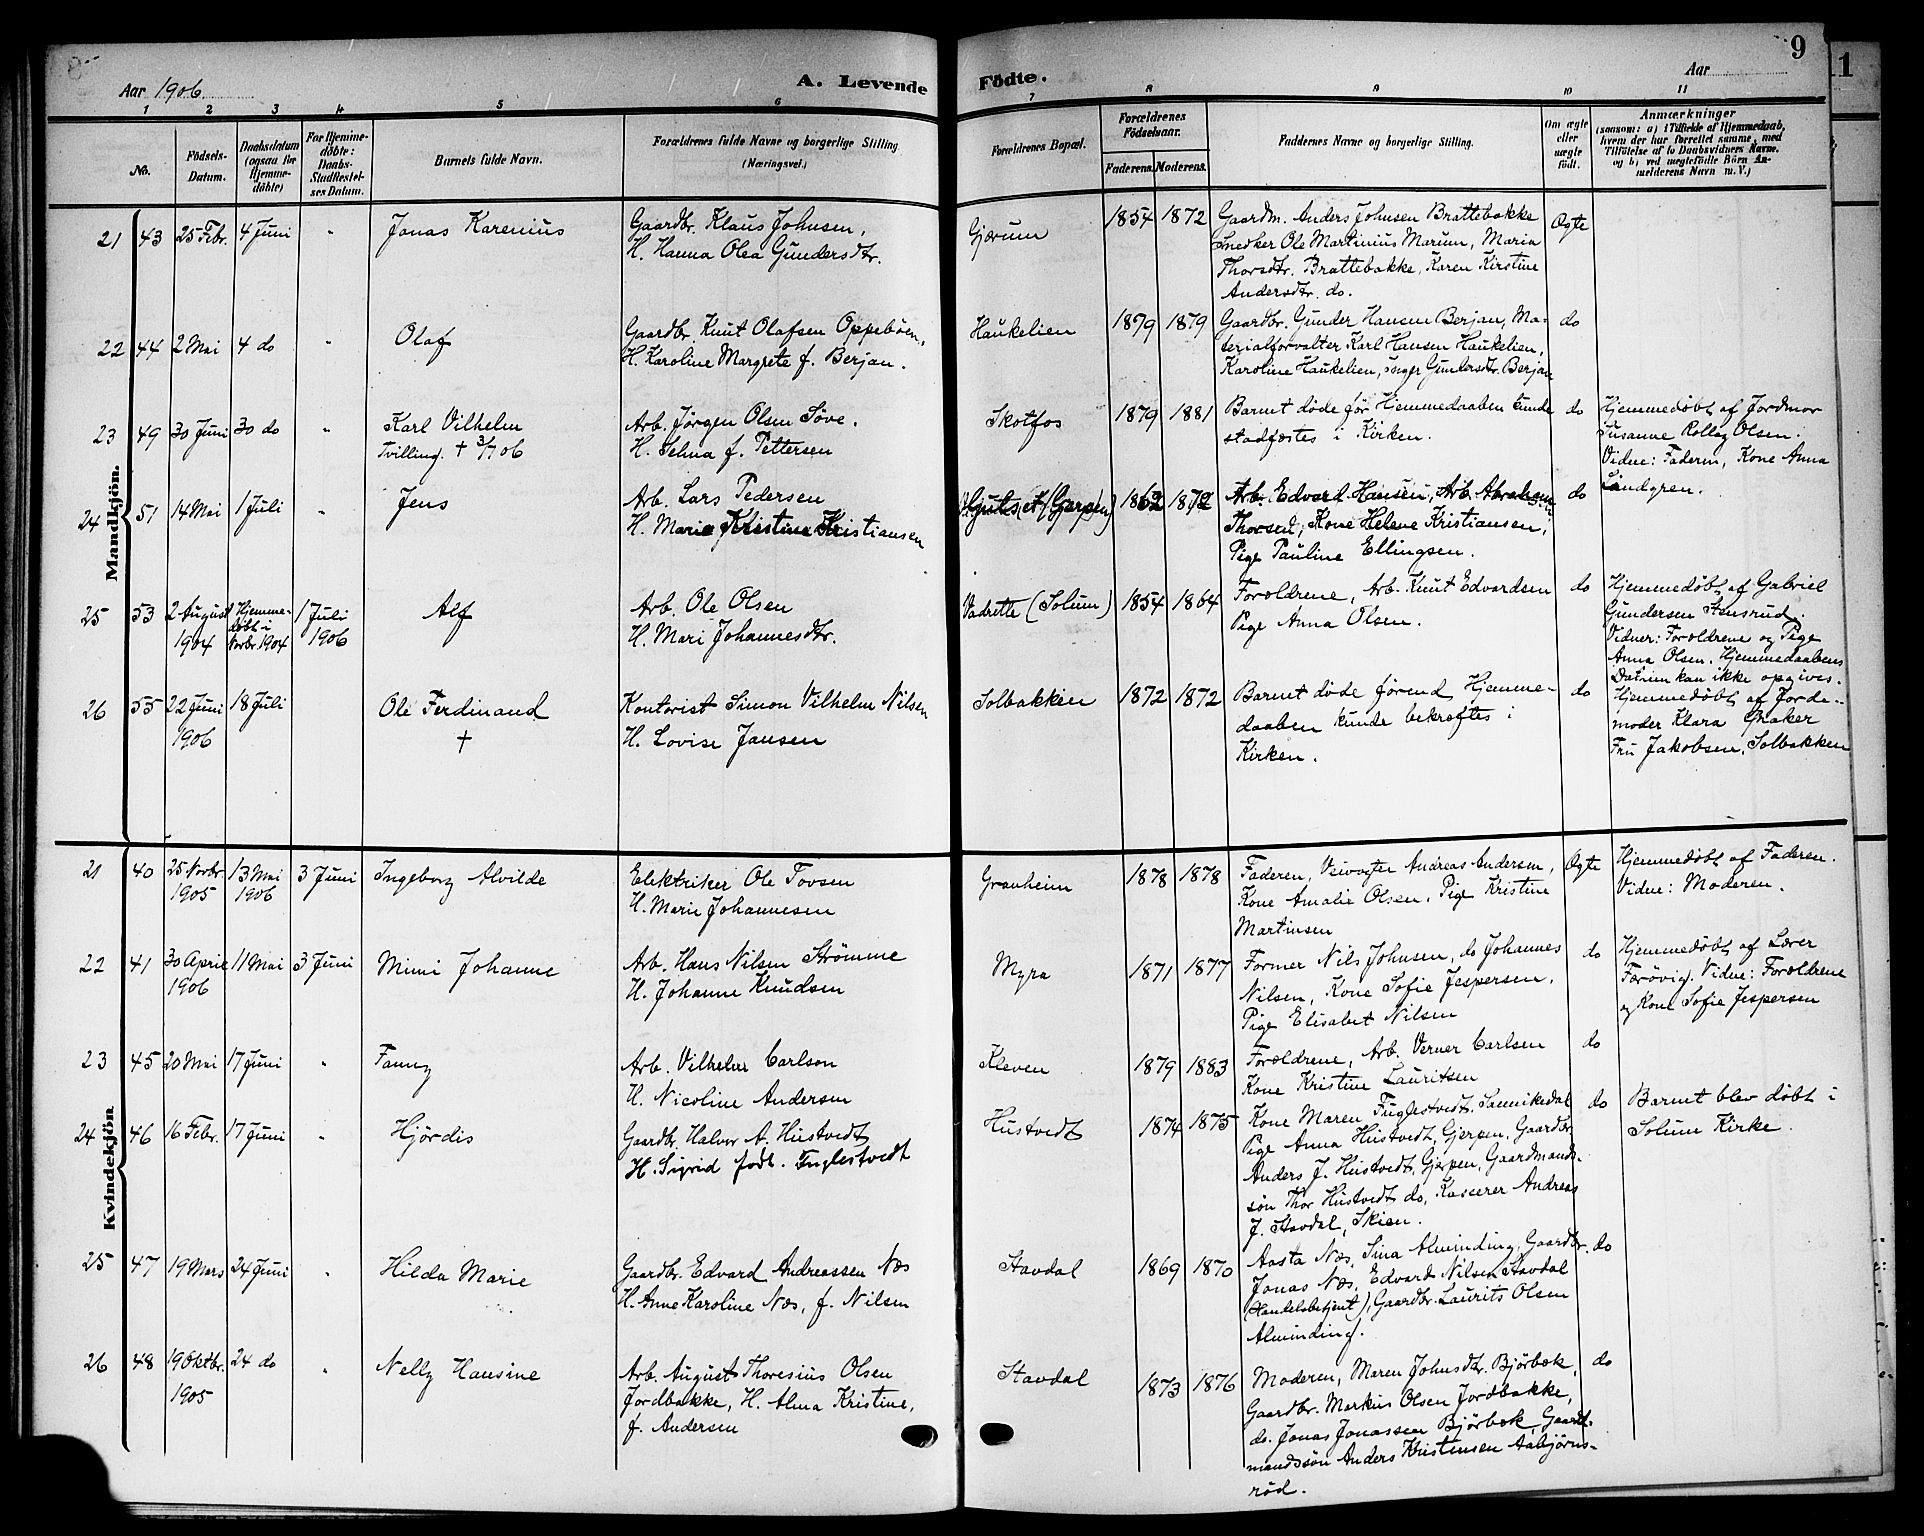 8
9
11
Aar 1906.
A. Levende
Födte.
Aar
1 2 3 4 5 6 7 8 9 10 11
No.
Födsels-
Datum.
Daabsdatum
(ogsaa for
Hjemme-
döbte)
For Hjemme-
döbte:
Daabs-
Stadfæstel-
ses Datum.
Barnets fulde Navn.
Forældrenes fulde Navne og borgerlige Stilling
(Næringsvei.)
Forældrenes Bopæl.
Forældrenes
Födselsaar.
Faderens. Moderens.
Faddernes Navne og borgerlige Stilling.
Om ægte
eller
uægte
födt.
Anmærkninger
(saasom: a) i Tilfælde af Hjemmedaab,
hvem der har forrettet samme, med
Tilföielse af to Daabsvidners Navne.
og b) ved uægtefödte Börn An-
melderens Navn m. V.)
Mandkjön.
21 43 25 Febr. 4 Juni " Jonas Karenius
Gaardbr. Klaus Johnsen,
H. Hanna Olea Gundersdtr.
Gjærum 1854 1872
Gaardm. Anders Johnsen Brattebakke
Snedker Ole Martinius Marum, Maria
Thorsdtr. Brattebakke, Karen Kirstine
Andersdtr. do.
Ægte
22 44 2 Mai 4 do " Olaf
Gaardbr. Knut Olafsen Oppebøen,
H. Karoline Margrete f. Berjan.
Haukelien 1879 1879
Gaardbr. Gunder Hansen Berjan, Ma-
terialforvalter Karl Hansen Haukelien,
Karoline Haukelien, Inger Gundersdtr. Berjan
do
23 49 30 Juni 30 do " Karl Vilhelm
Tvilling. † 3/7 06
Arb. Jørgen Olsen Söve.
H. Selma f. Pettersen
Skotfos 1879 1881
Barnet døde før Hjemmedaaben kunde
stadfæstes i Kirken.
do
Hjemmedøbt af Jordmor
Susanne Olsen.
Vidne: Faderen, Kone Anna
Lindgren.
24 51 14 Mai 1 Juli " Jens
Arb. Lars Pedersen
H. Maria Kristine Kristiansen
(Gjerpen) 1862 1872
Arb. Edvard Hansen, Arb. Abraham
Thorsen, Kone Helene Kristiansen,
Pige Pauline Ellingsen.
do
25 53 2 August
1904
Hjemme-
døbt i
Novbr. 1904
1 Juli
1906
Alf
Arb. Ole Olsen
H. Mari Johannesdtr.
Vadrette (Solum) 1854 1864
Forældrene, Arb. Knut Edvardsen
Pige Anna Olsen.
do
Hjemmedøbt af Gabriel
Gundersen Stensrud.
Vidner: Forældrene og Pige
Anna Olsen. Hjemmedaabens
Datum kan ikke opgives.
26 55 22 Juni
1906
18 Juli
Ole Ferdinand
†
Kontorist Simon Vilhelm Nilsen
H. Lovise Jansen
Solbakken 1872 1872
Barnet døde førend Hjemme-
daaben kunde bekræftes i
Kirken.
do
Hjemmedøbt af Jorde-
moder Klara Graker
Fru Jakobsen, Solbakken
Kvindekjön.
21 40 25 Novbr.
1905
13 Mai
1906
3 Juni Ingeborg Alvilde
Elektriker Ole Tovsen
H. Marie Johannesen
Granheim 1878 1878
Faderen, Veivogter Andreas Andersen,
Kone Amalie Olsen, Pige Kristine
Martinsen
Ægte
Hjemmedøbt af Faderen.
Vidne: Moderen.
22 41 30 April
1906
11 Mai 3 Juni Mimi Johanne
Arb. Hans Nilsen Strömme
H. Johanne Knudsen
Myra 1871 1877
Former Nils Johnsen, do Johannes
Nilsen, Kone Sofie Jespersen,
Pige Elisabet Nilsen
do
Hjemmedøbt af Lærer
Færøvig. Vidne: Forældrene
og Kone Sofie Jespersen
23 45 20 Mai 17 Juni " Fanny
Arb. Vilhelm Carlson
H. Nicoline Andersen
Kleven 1879 1883
Forældrene, Arb. Verner Carlsen
Kone Kristine Lauritsen
do
24 46 16 Febr. 17 Juni " Hjördis
Gaardbr. Halvor A. Hustvedt
H. Sigrid født. Fuglestvedt
Hustvedt 1874 1875
Kone Maren Fuglestvedt, Sannikedal
Pige Anna Hustvedt, Gjerpen, Gaardbr.
Anders J. Hustvedt, Gjerpen, Gaardmands-
søn Thor Hustvedt do, Kasserer Andreas
J. Stavdal, Skien.
do
Barnet blev døbt i
Solum Kirke.
25 47 19 Mars 24 Juni " Hilda Marie
Gaardbr. Edvard Andreassen Næs
H. Anne Karoline Næs, f. Nilsen
Stavdal 1869 1870
Aasta Næs, Sina Alminding, Gaardbr.
Jonas Næs, Edvard Nilsen Stavdal
(Handelsbetjent), Gaardbr. Laurits Olsen
Almindinf.
do
26 48 19 Oktbr.
1905
24 do " Nelly Hansine
Arb. August Thoresius Olsen
Jordbakke, H. Alma Kristine,
f. Andersen
Stavdal 1873 1876
Moderen, Maren Johnsdtr. Bjørbæk,
Gaardbr. Markus Olsen Jordbakke,
do. Jonas Jonassen Bjørbæk, Gaard-
mandssøn Anders Kristensen Asbjørns-
rød.
do